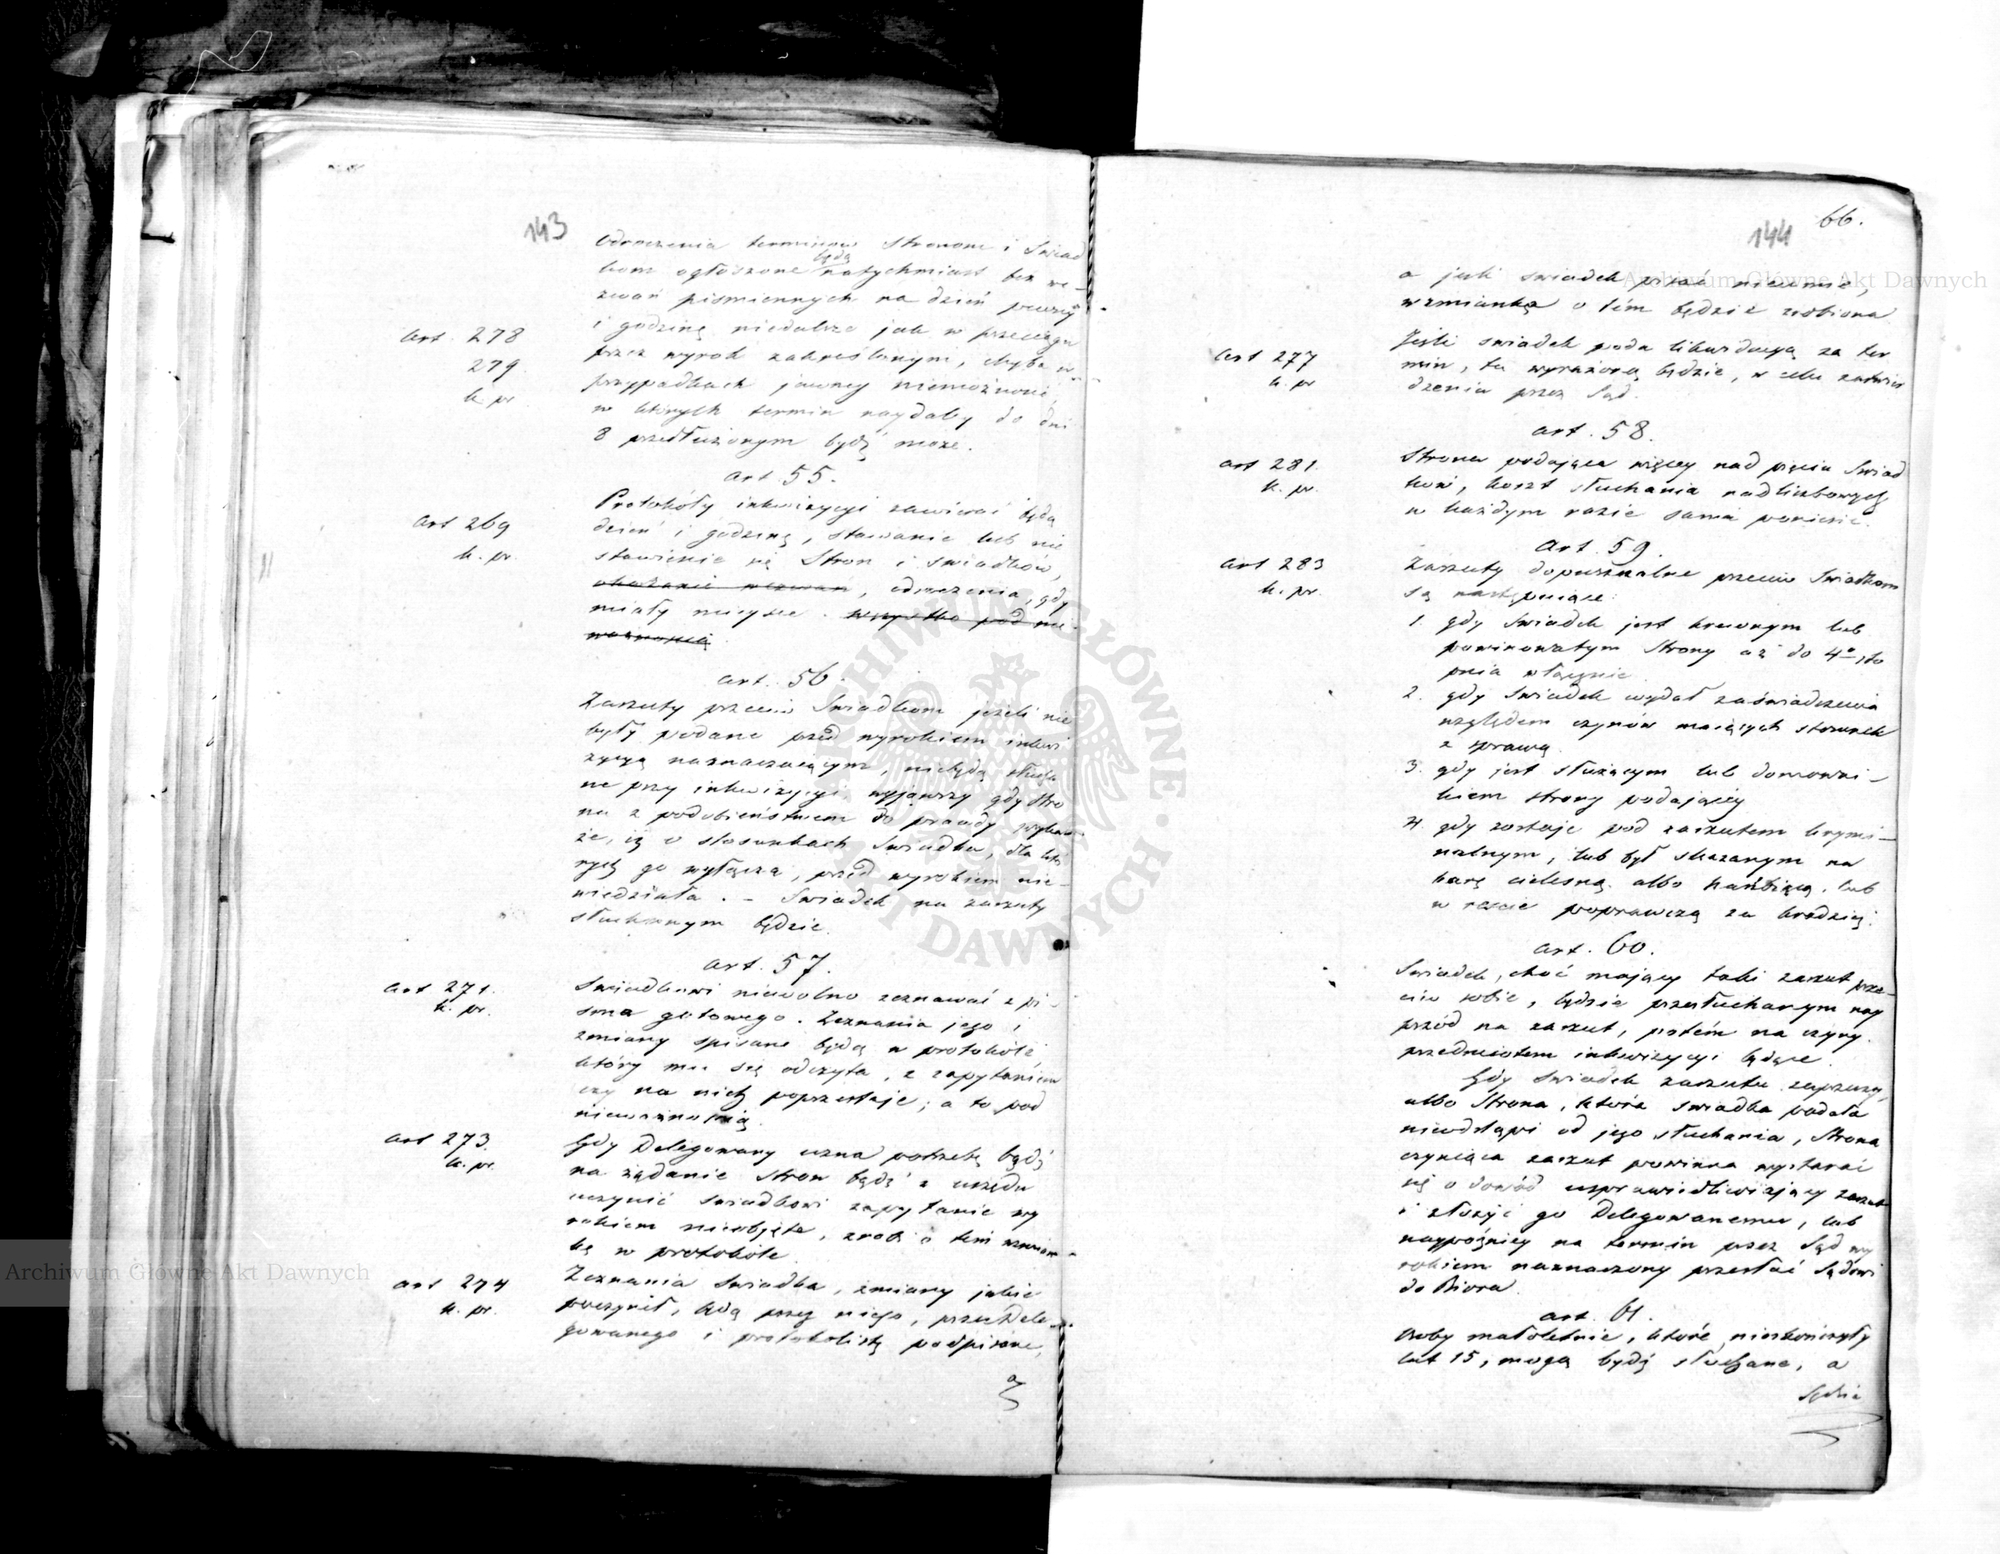 143
Odroczenia terminow Stronom i Swiad
będą
kom ogłoszone natychmiast bez we-
zwań pismiennych na dzień pewny
art. 278
i godzinę niedalsze jak w przeciągu
279
przez wyrok zakreślonym, chyba w
k. pr.
przypadkach jawney niemożności,
w których termin naydaley do dni
8 przedłużonym bydź może.
art. 55.
Protokóły inkwizycyi zawierać będą
art 269
dzień i godzinę, stawanie lub nie
k. pr.
stawienie się Stron i swiadków,
okazanie wezwań, odroczenia, gdy
miały mieysce. wszystko pod nie-
ważnością.
art. 56.
Zarzuty przeciw Swiadkom jeżeli nie
były podane przed wyrokiem inkwi
zycyą naznaczającym, niebędą słucha
ne przy inkwizycyi, wyjąwszy gdy stro
na z podobieństwem do prawdy wykaże
że, iż o stosunkach Swiadka, dla któ
rych go wyłącza, przed wyrokiem nie-
wiedziała. – Swiadek na zarzuty
słuchanym będzie.
art. 57.
art 271.
k. pr.
Swiadkowi niewolno zeznawać z pi-
sma gotowego. Zeznania jego i
zmiany spisane będą w protokóle,
który mu się odczyta, z zapytaniem
czy na nich poprzestaje; a to pod
nieważnością.
art 273.
k. pr.
Gdy Delegowany uzna potrzebę bądź
na żądanie stron bądź z urzędu
uczynić swiadkowi zapytanie wy
rokiem nieobjęte, zrobi o tem wzmian-
kę w protokóle.
art 274
k. pr.
Zeznania swiadka, zmiany jakie
poczynił, będą przez niego, przez Dele-
gowanego i protokolistę podpisane,
a
66.
144
a jeśli swiadek pisać nieumie,
wzmianka o tém będzie zrobiona
art 277
k. pr
Jeśli swiadek poda likwidacyą za ter
min, ta wyrażoną będzie, w celu zatwier
dzenia przez Sąd.
art. 58.
art 281.
k. pr.
Strona podająca więcey nad pięciu Swiad
ków, koszt słuchania nadliczbowych
w każdym razie sama poniesie.
art. 59.
art 283
k. pr.
Zarzuty dopuszczalne przeciw Swiadkom
są następujące:
1. gdy Swiadek jest krewnym lub
powinowatym Strony aż do 4º sto
pnia włącznie.
2. gdy Swiadek wydał zaświadczenia
względem czynów maiących stosunek
z sprawą.
3. gdy jest służącym lub domowni-
kiem strony podającéy
4. gdy zostaje pod zarzutem krymi-
nalnym, lub był skazanym na
karę cielesną albo hańbiącą, lub
w razie poprawczą za kradzież.
art. 60.
Swiadek, choć mający taki zarzut prze-
ciw sobie, będzie przesłuchanym nay
przód na zarzut, potém na czyny
przedmiotem inkwizycyi będące.
Gdy Swiadek zarzutu zaprzeczy,
albo Strona, która swiadka podała
nieodstąpi od jego słuchania, Strona
czyniąca zarzut powinna wystarać
się o dowód usprawiedliwiający zarzut
i złożyć go Delegowanemu, lub
naypóźniey na termin przez Sąd wy
rokiem naznaczony przesłać Sądowi
do Biora.
art. 61.
Osoby małoletnie, które nieskończyły
lat 15, mogą bydź słuchane, a
Sędzia
ARCHIWUM GŁÓWNE AKT DAWNYCH
Archiwum Główne Akt Dawnych
Archiwum Główne Akt Dawnych